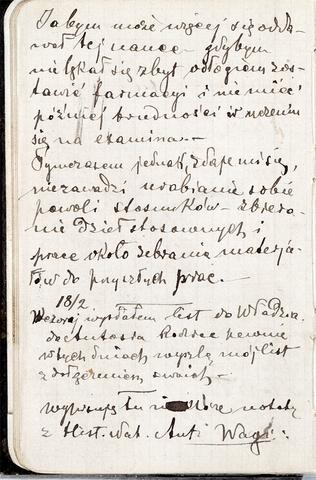 Ja bym może więcej się odda-
wał tej nauce – gdybym
nie lękał się zbyt odłogiem zos-
tawić farmacyi i nie mieć
później trudności w uczeniu
się na examina. –
Tymczasem jednak zdaje mi się,
nie zawadzi urabianie sobie
powoli stosunków – zbiera-
nie dzieł stosownych i
prace około zebrania materja-
łów do przyszłych prac. –
18/2
Wczoraj wysłałem list do Władzia.
do Antosia Rodzice pewnie
w tych dniach wyszlą mój list
z dołączeniem swoich. –
Wypisuję tu notatę
z Hist. nat. Ant. Wagi :